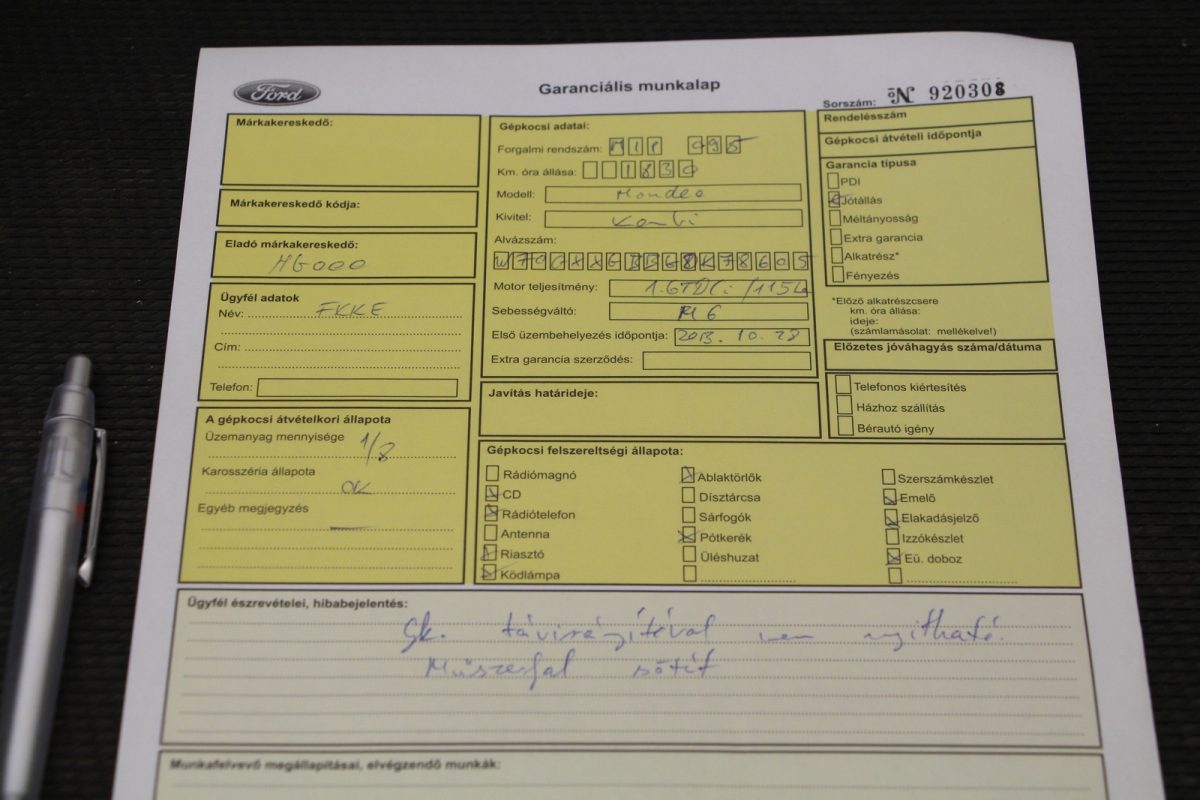 Ford
Garanciális munkalap
Sorszám: № 920308
Márkakereskedő:
Márkakereskedő kódja:
Eladó márkakereskedő:
HG000
Ügyfél adatok
Név: FKKE
Cím:
Telefon:
A gépkocsi átvételkori állapota
Üzemanyag mennyisége 1/8
Karosszéria állapota
OK
Egyéb megjegyzés
Gépkocsi adatai:
Forgalmi rendszám: 095
Km. óra állása: 1830
Modell: Mondeo
Kivitel: Kombi
Alvázszám:
Motor teljesítmény: 1.6TDCi /115
Sebességváltó: M6
Első üzembehelyezés időpontja: 2013. 10. 28
Extra garancia szerződés:
Javítás határideje:
Rendelésszám
Gépkocsi átvételi időpontja
Garancia típusa
PDI
Jótállás
Méltányosság
Extra garancia
Alkatrész*
Fényezés
*Előző alkatrészcsere
km. óra állása:
ideje:
(számlamásolat: mellékelve!)
Előzetes jóváhagyás száma/dátuma
Telefonos kiértesítés
Házhoz szállítás
Bérautó igény
Gépkocsi felszereltségi állapota:
Rádiómagnó
CD
Rádiótelefon
Antenna
Riasztó
Ködlámpa
Ablaktörlők
Dísztárcsa
Sárfogók
Pótkerék
Üléshuzat
Szerszámkészlet
Emelő
Elakadásjelző
Izzókészlet
Eü. doboz
Ügyfél észrevételei, hibabejelentés:
Gk. távirányítóval nem nyitható.
Műszerfal sötét
Munkafelvevő megállapításai, elvégzendő munkák: